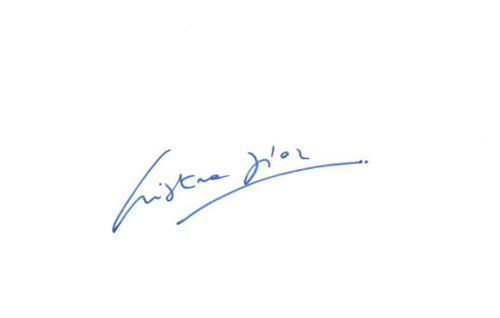 Cristina Díaz